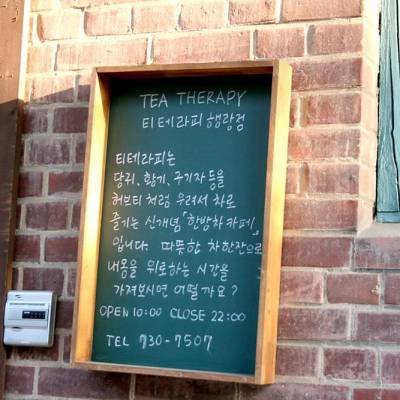 TEA THERAPY
티테라피 행랑점
티테라피는
당귀, 황기, 구기자 등을
허브티 처럼 우려서 차로
즐기는 신개념「한방차 카페」
입니다. 따뜻한 차 한잔으로
내 몸을 위로하는 시간을
가져보시면 어떨까요?
OPEN 10:00 CLOSE 22:00
TEL 730-7507